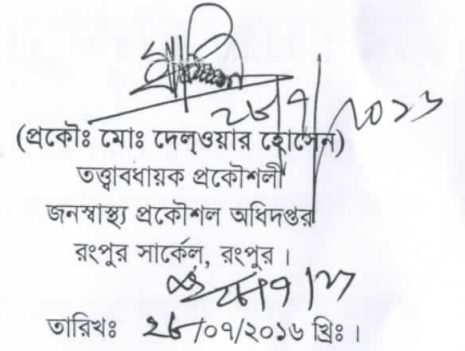 ২৮/৭/২০১৬
(প্রকৌঃ মোঃ দেল্ওয়ার হোসেন)
তত্ত্বাবধায়ক প্রকৌশলী
জনস্বাস্থ্য প্রকৌশল অধিদপ্তর
রংপুর সার্কেল, রংপুর ।
২৮/৭/১৬
তারিখঃ ২৮/০৭/২০১৬ খ্রিঃ ।